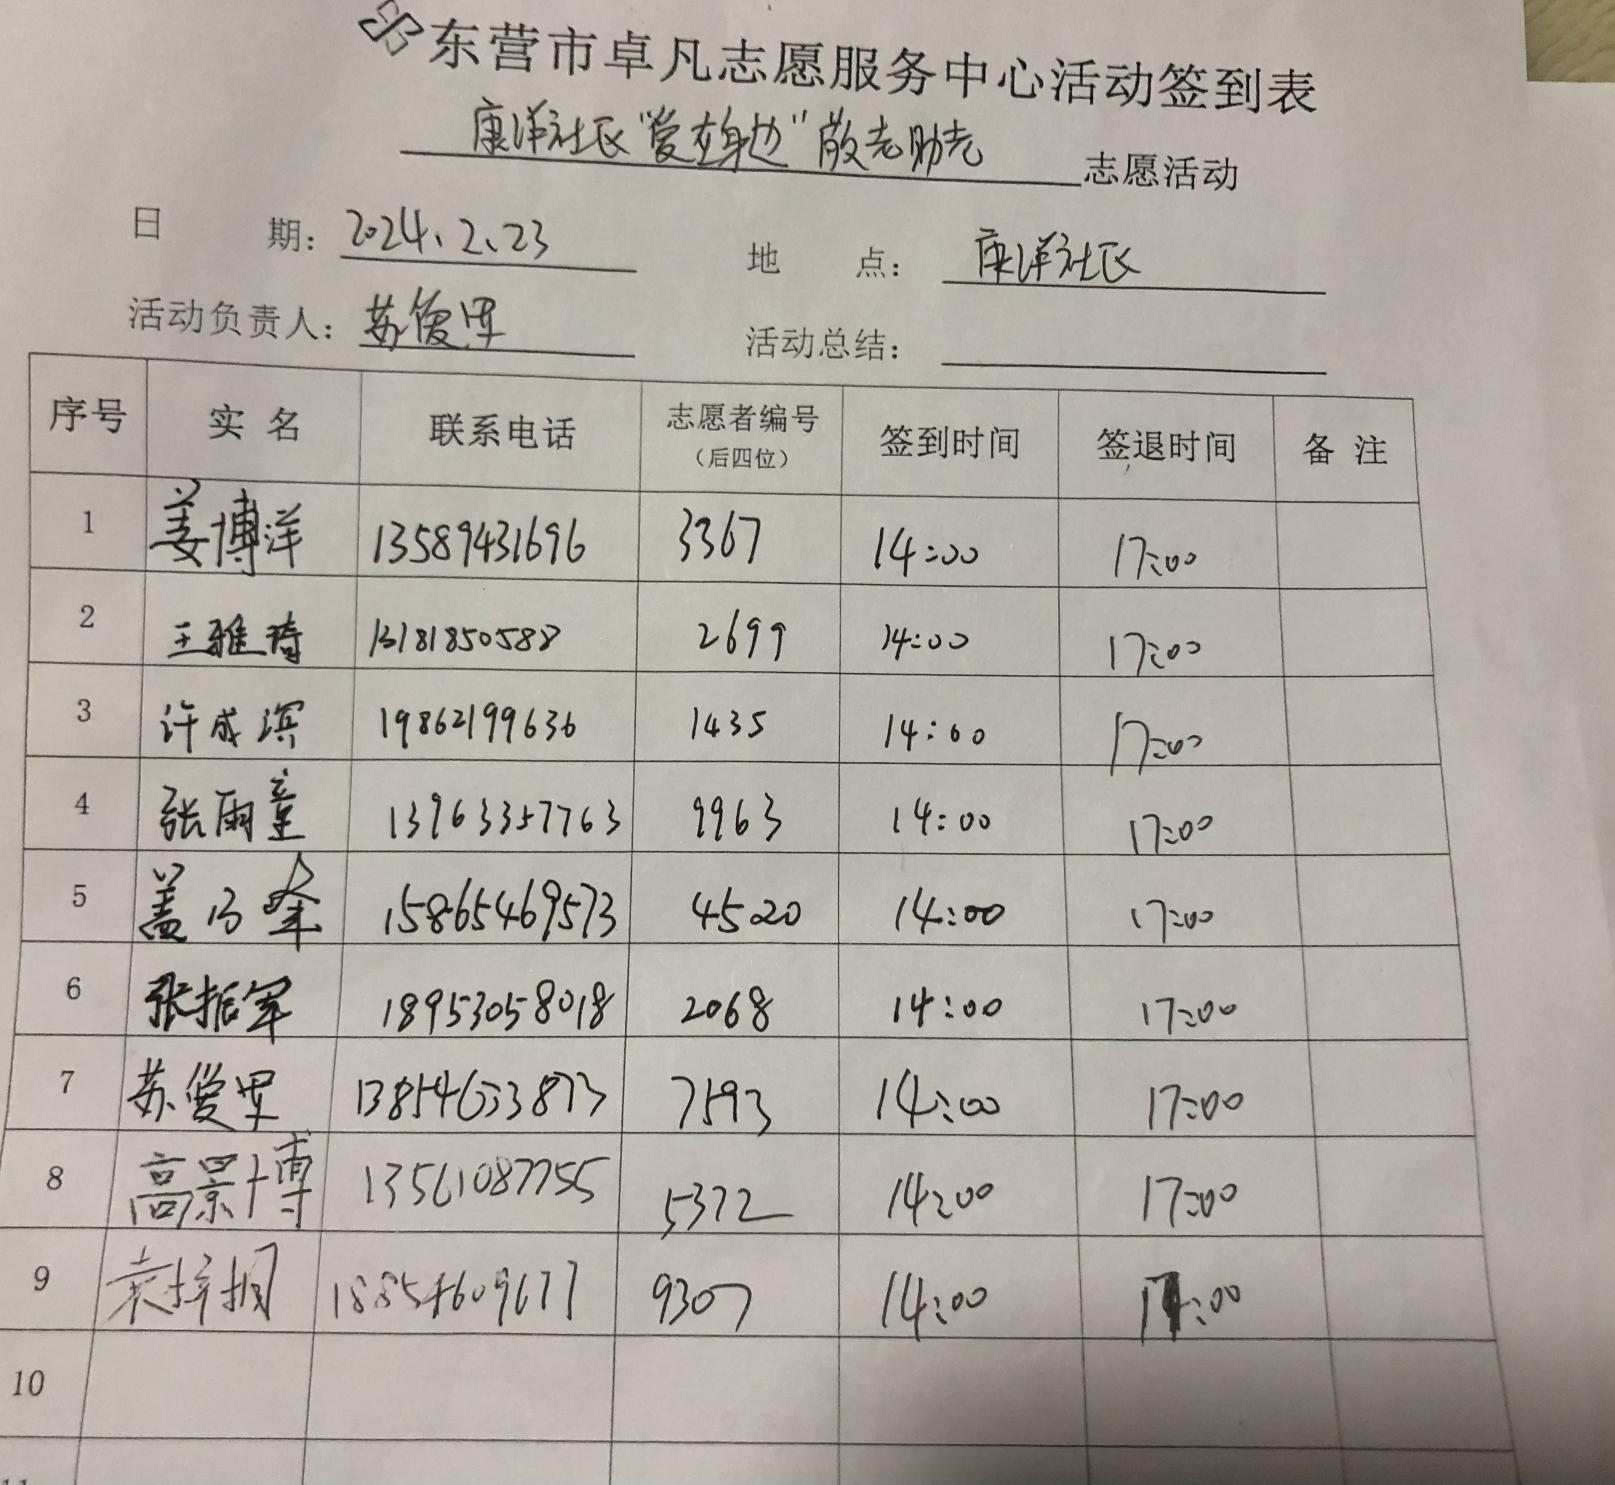 东营市卓凡志愿服务中心活动签到表
康洋社区"爱在身边"敬老助老 志愿活动
日 期: 2024、2、23 地 点: 康洋社区
活动负责人: 苏俊军 活动总结:
序号 实 名 联系电话 志愿者编号 (后四位) 签到时间 签退时间 备 注
1 姜博洋 13589431696 3367 14:00 17:00
2 王雅琦 13181850588 2699 14:00 17:00
3 许成滨 19862199636 1435 14:00 17:00
4 张雨童 13963357763 9963 14:00 17:00
5 盖 15865469573 4520 14:00 17:00
6 张振军 18953058018 2068 14:00 17:00
7 苏俊军 13854633873 7593 14:00 17:00
8 高景博 13561087755 5372 14:00 17:00
9 袁梓桐 18854609677 9307 14:00 17:00
10
11